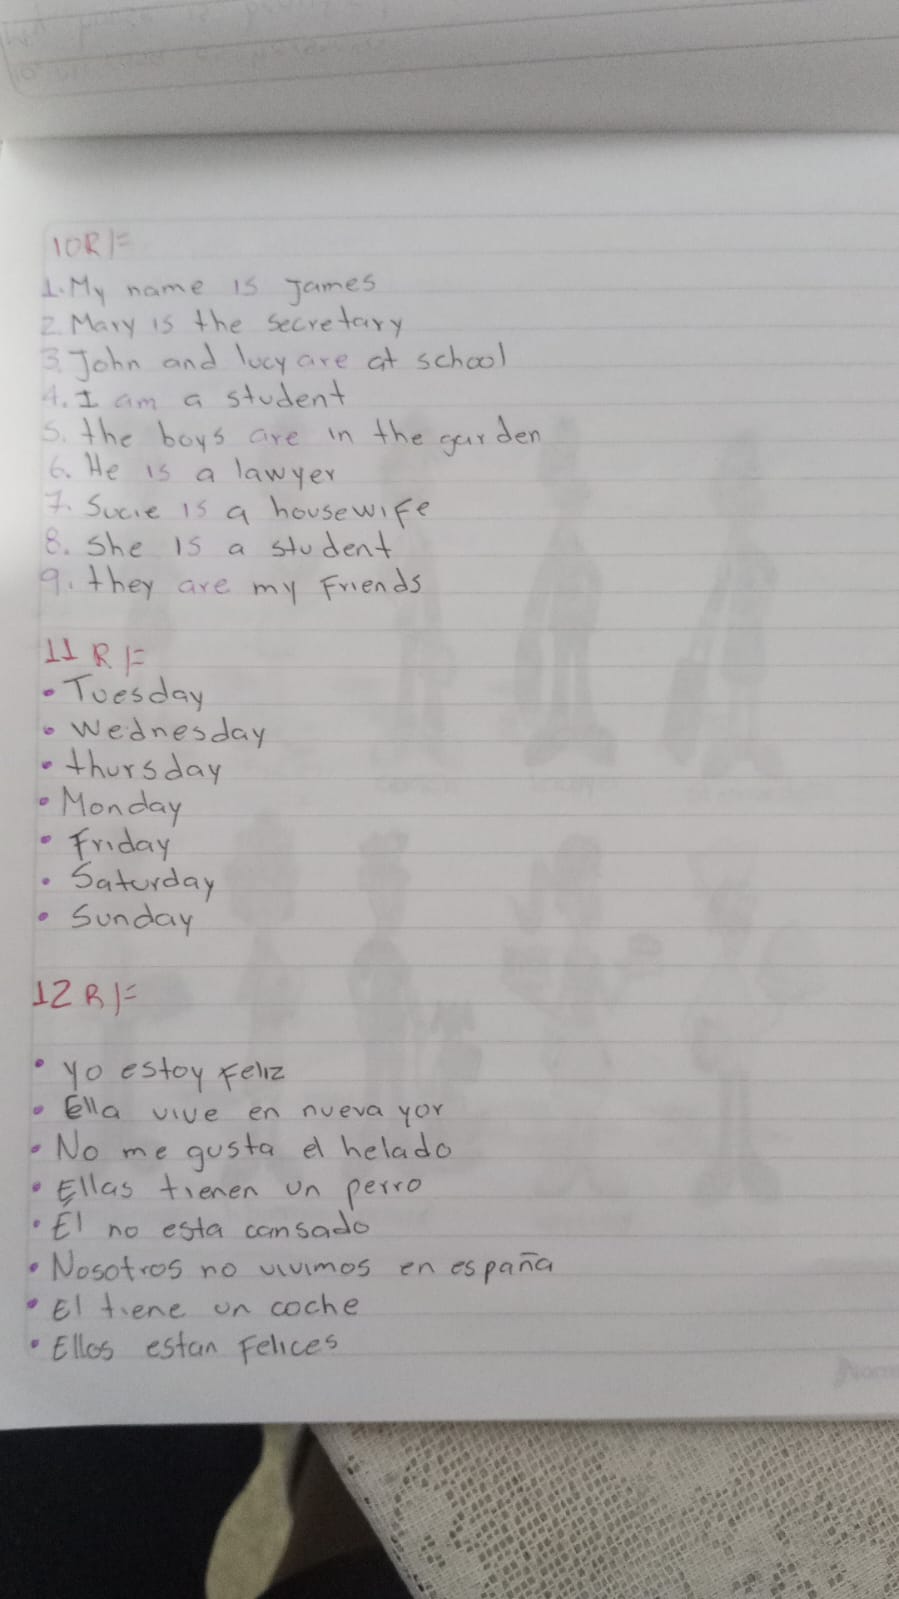 10R/=
1. My name is James
2. Mary is the secretary
3. John and lucy are at school
4. I am a student
5. the boys are in the garden
6. He is a lawyer
7. Sucie is a housewife
8. She is a student
9. they are my Friends
11 R/=
• Tuesday
• Wednesday
• thursday
• Monday
• Friday
• Saturday
• Sunday
12 R/=
• yo estoy Feliz
• Ella vive en nueva yor
• No me gusta el helado
• Ellas tienen un perro
• Él no esta cansado
• Nosotros no vivimos en españa
• El tiene un coche
• Ellos estan Felices